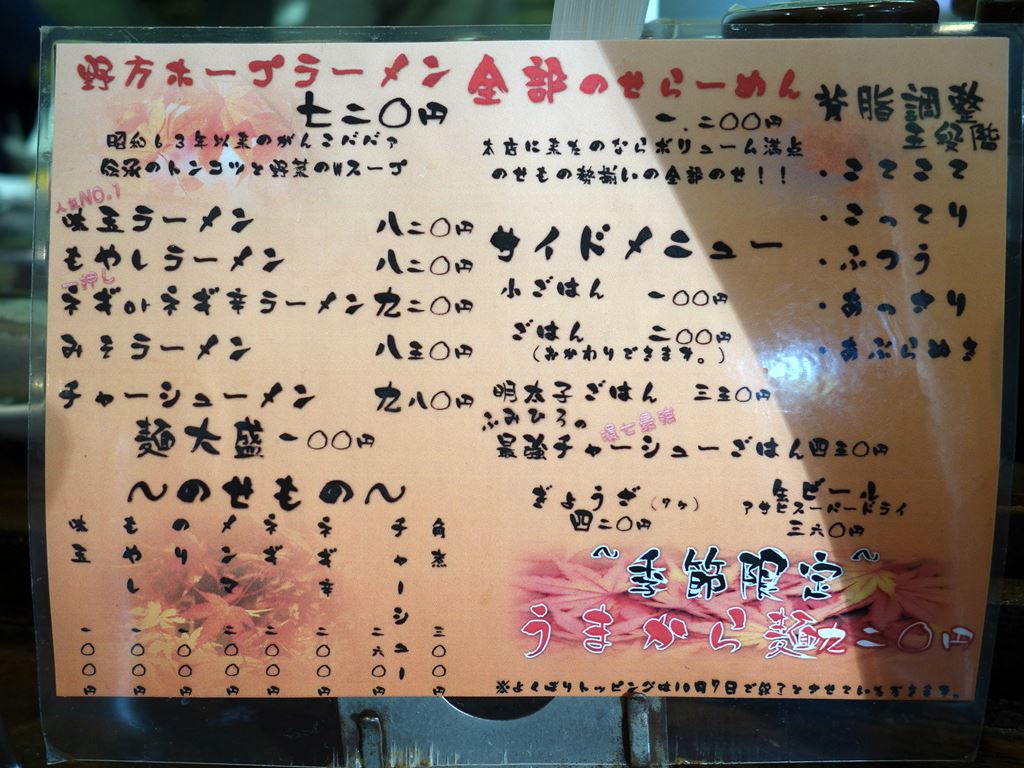 野方ホープラーメン
七二〇円
昭和63年以来のがんこババァ
のトンコツと野菜のWスープ
人気NO.1
味玉ラーメン 八二〇円
もやしラーメン 八二〇円
一押し
ネギorネギ辛ラーメン 九二〇円
みそラーメン 八五〇円
チャーシューメン 九八〇円
麺大盛 一〇〇円
〜のせもの〜
味玉 一〇〇円
もやし 一〇〇円
のり 一〇〇円
メンマ 二〇〇円
ネギ 二〇〇円
ネギ辛 二〇〇円
チャーシュー 二六〇円
角煮 三〇〇円
全部のせらーめん
一、二〇〇円
本店に来たのならボリューム満点
のせもの勢揃いの全部のせ!!
サイドメニュー
小ごはん 一〇〇円
ごはん 二〇〇円
(おかわりできます。)
明太子ごはん 三五〇円
ふみひろの
最強チャーシューごはん 四五〇円
ぎょうざ(7ヶ)
四二〇円
生ビール
アサヒスーパードライ
三六〇円
背脂調整
五段階
・こてこて
・こってり
・ふつう
・あっさり
・あぶらぬき
〜季節限定〜
うまから麺 九二〇円
※よくばりトッピングは10月7日で終了とさせていただきます。